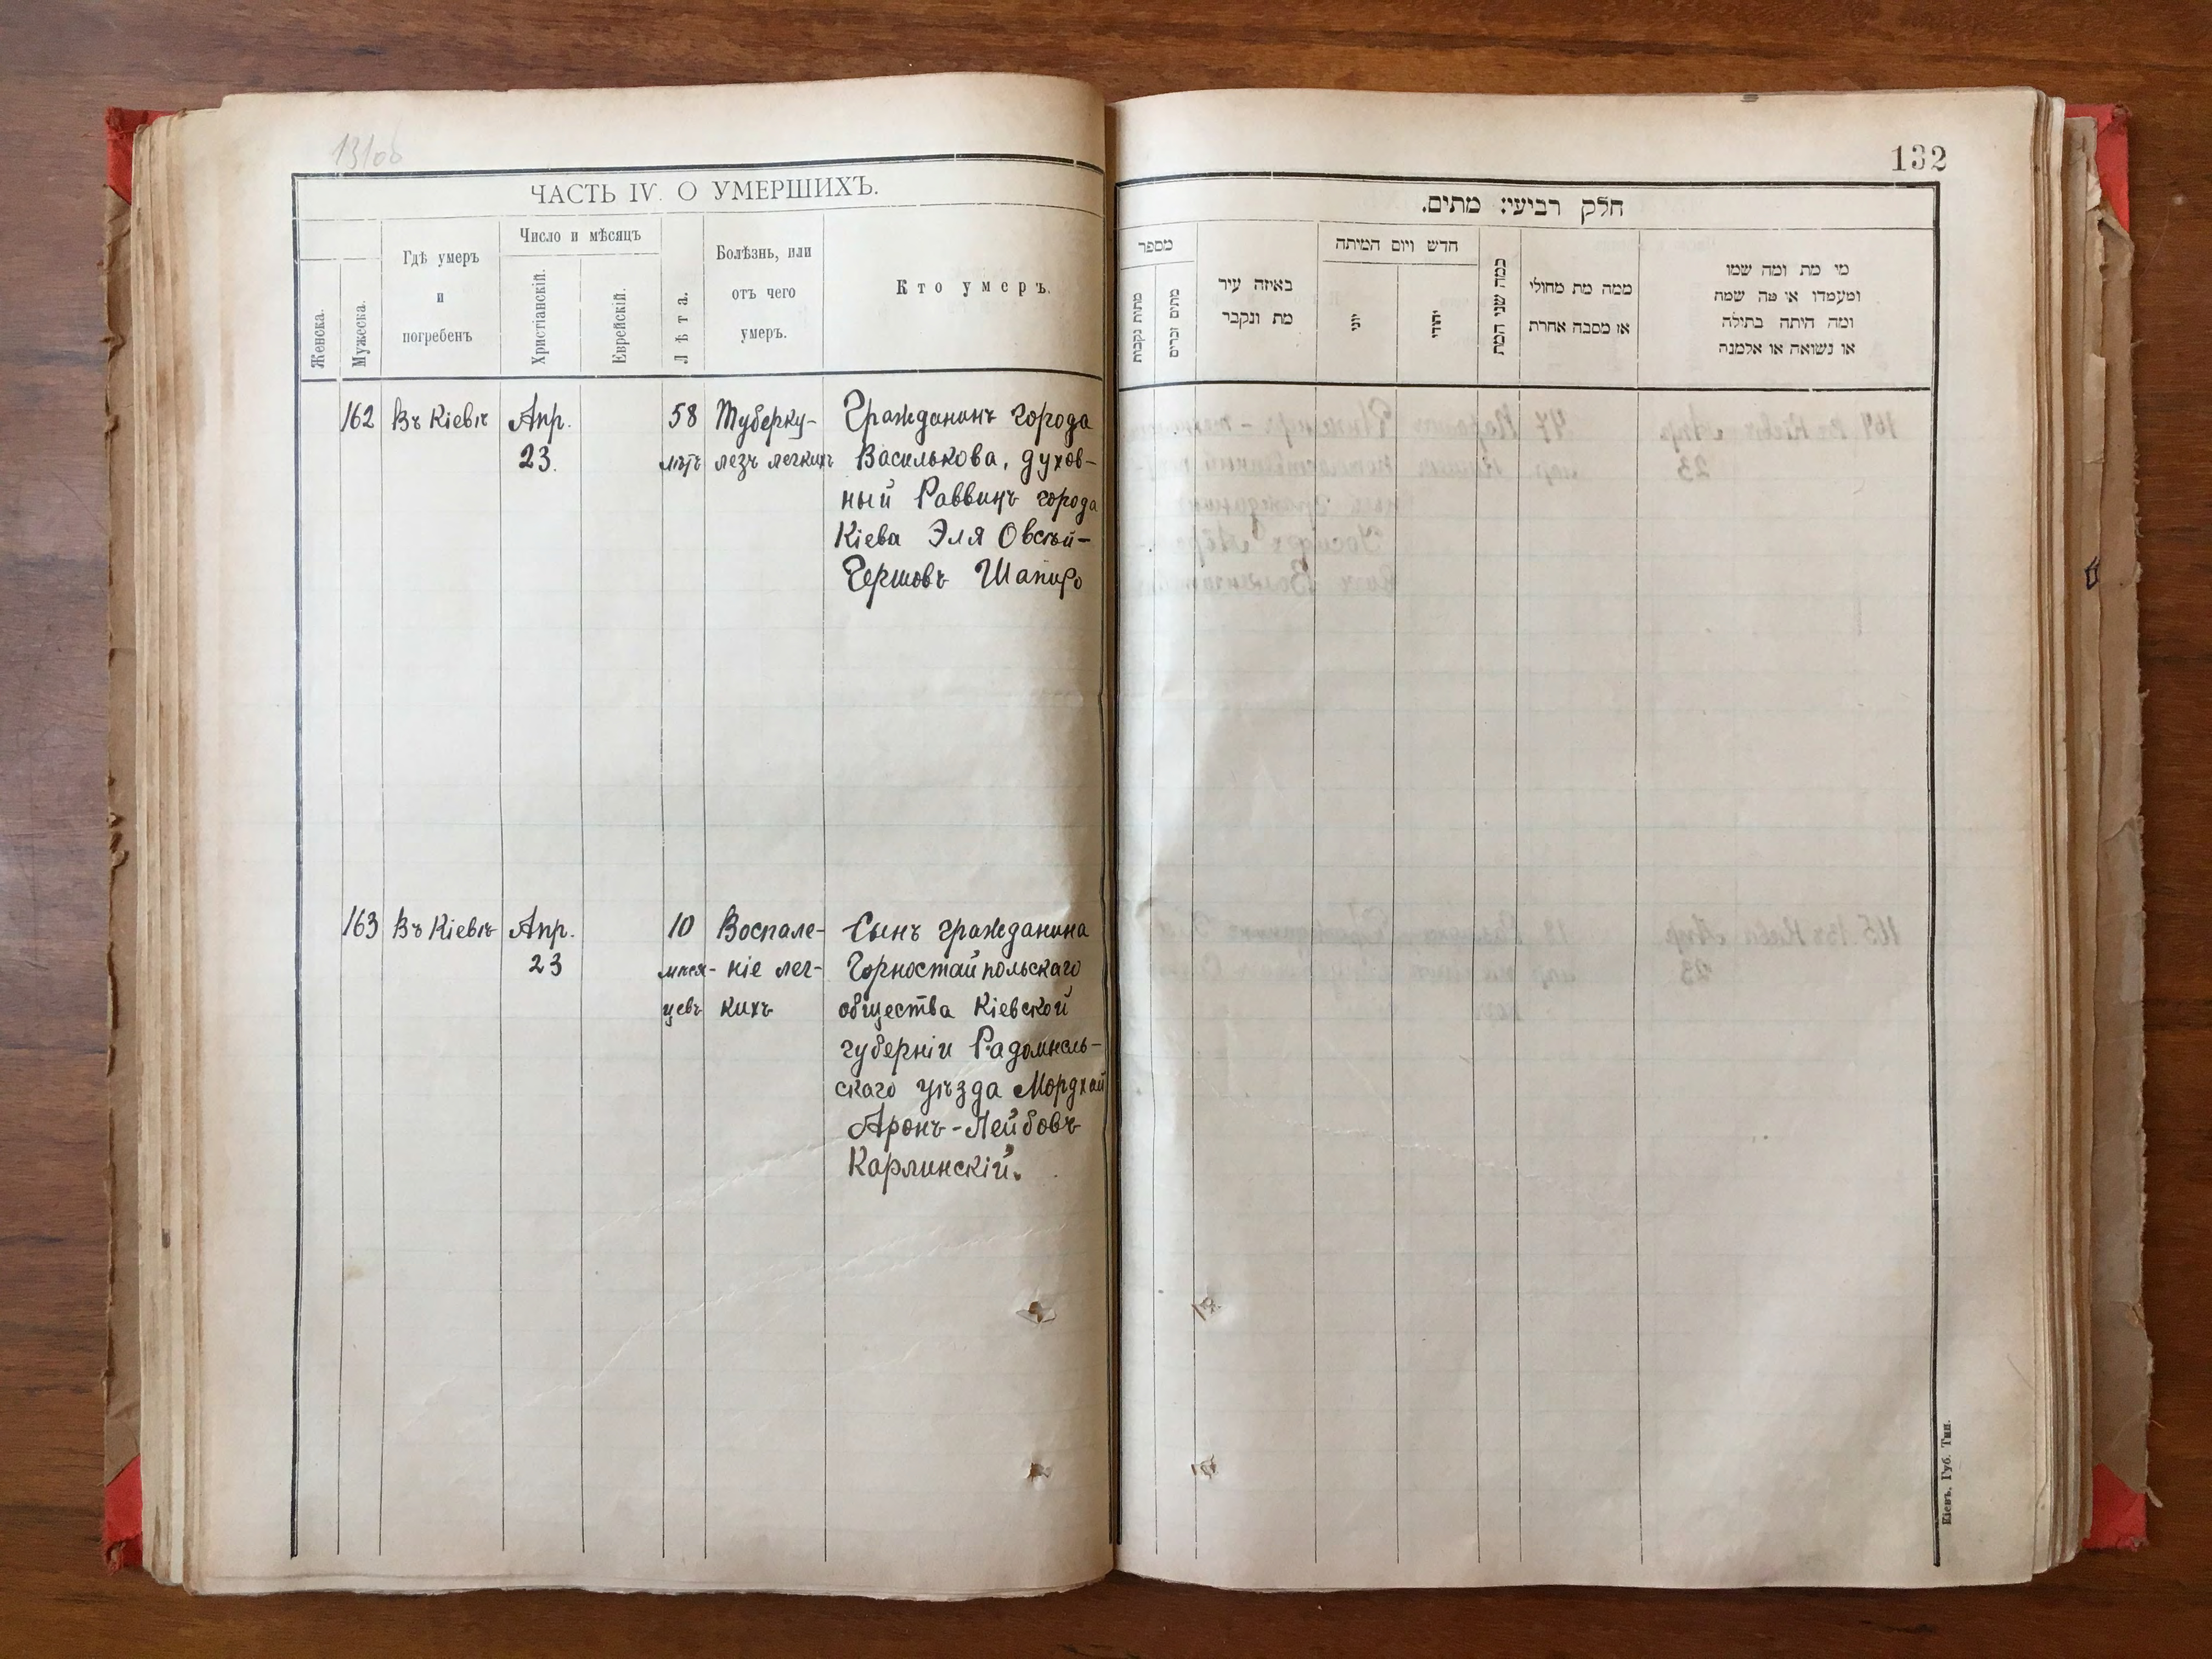 131об
ЧАСТЬ IV. О УМЕРШИХЪ.
Женска.
Мужеска.
Гдѣ умеръ
и
погребенъ
Число и мѣсяцъ
Христіанскій.
Еврейскій.
Лѣта.
Болѣзнь, или
отъ чего
умеръ.
Кто умеръ.
162 Въ Кіевѣ Апр. 58 Туберку- Гражданинъ города
23. лѣтъ лезъ легкихъ Василькова, духов-
ный Раввинъ города
Кіева Эля Овсѣй-
Гершовъ Шапиро
163 Въ Кіевѣ Апр. 10 Воспале- Сынъ гражданина
23 мѣся- ніе лег- Горностайпольскаго
цевъ кихъ общества Кіевской
губерніи Радомысль-
скаго уѣзда Мордхай
Аронъ-Лейбовъ
Карлинскій.
132
חלק רביעי: מתים.
מספר
מתות נקבות
מתים זכרים
באיזה עיר
מת ונקבר
חדש ויום המיתה
יוני
יהודי
כמה שני המת
ממה מת מחולי
או מסבה אחרת
מי מת ומה שמו
ומעמדו או מה שמה
ומה היתה בתולה
או נשואה או אלמנה
Кіевъ, Губ. Тип.